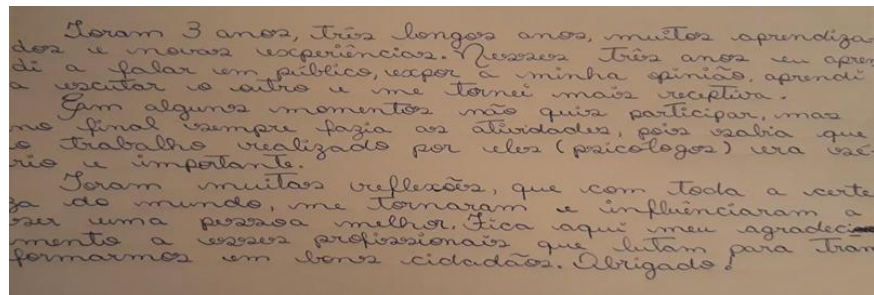 Foram 3 anos, três longos anos, muitos aprendiza
dos e novas experiências. Nesses três anos eu apren
di a falar em público, expor a minha opinião, aprendi
a escutar o outro e me tornei mais receptiva.
Em alguns momentos não quis participar, mas
no final sempre fazia as atividades, pois sabia que
o trabalho realizado por eles (psicólogos) era sé-
rio e importante.
Foram muitas reflexões, que com toda a certe
za do mundo, me tornaram e influênciaram a
ser uma pessoa melhor. Fica aqui meu agradeci
mento a esses profissionais que lutam para tran
formarmos em bons cidadãos. Obrigado!